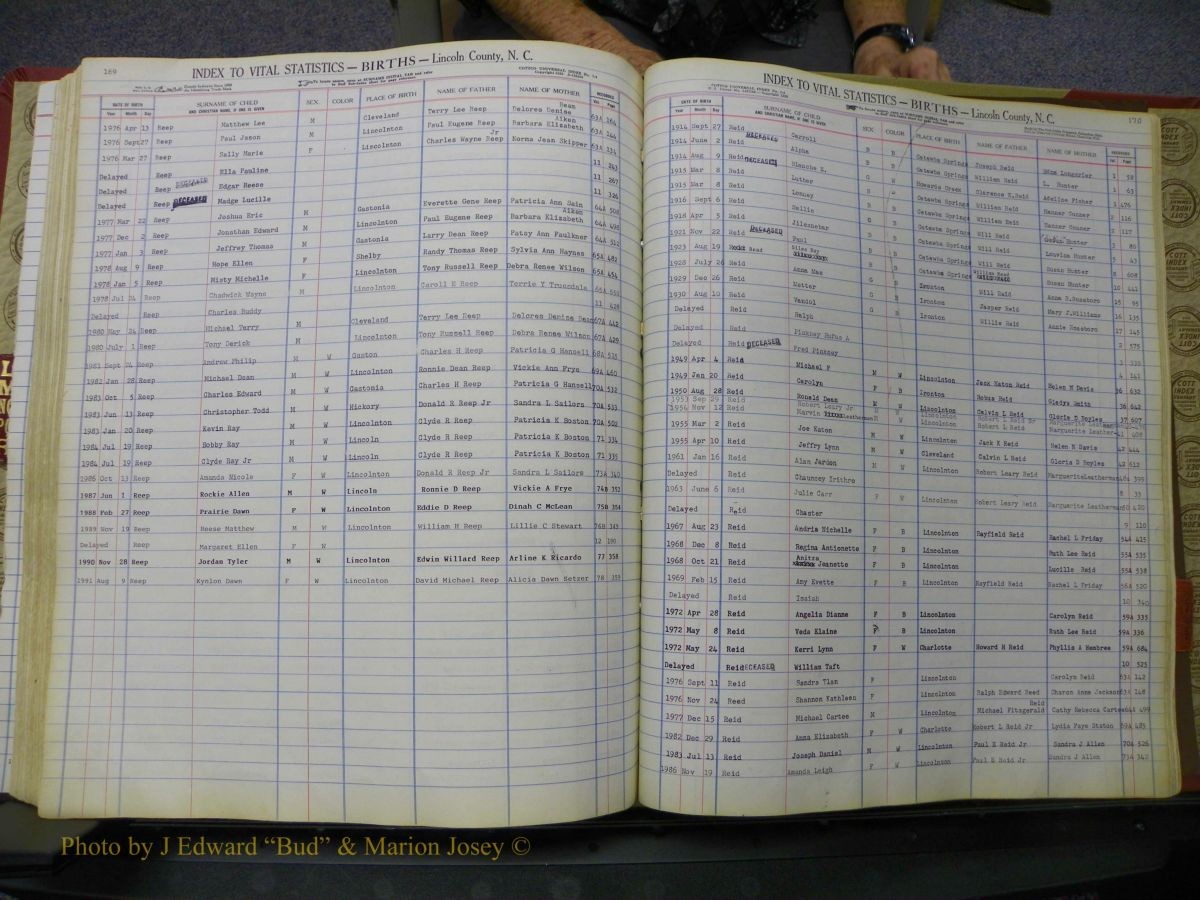 169
INDEX TO VITAL STATISTICS — BIRTHS — Lincoln County, N. C.
COTT'S UNIVERSAL INDEX
DATE OF BIRTH SURNAME OF CHILD AND CHRISTIAN NAME, IF ONE IS GIVEN SEX COLOR PLACE OF BIRTH NAME OF FATHER NAME OF MOTHER RECORDED
Year Month Day Vol. Page
1976 Apr 13 Reep Matthew Lee M Cleveland Terry Lee Reep Delores Denise Beam 63A 164
1976 Sept 27 Reep Paul Jason M Lincolnton Paul Eugene Reep Barbara Elizabeth Aiken
1976 Mar 27 Reep Sally Marie F Lincolnton Charles Wayne Reep Jr Norma Jean Skipper 63A 134
Delayed Reep Ella Pauline 11 243
Delayed Reep DECEASED Edgar Reese 11 267
Delayed Reep DECEASED Madge Lucille 11 326
1977 Mar 22 Reep Joshua Eric M Gastonia Everette Gene Reep Patricia Ann Sain 64A 508
1977 Dec 2 Reep Jonathan Edward M Lincolnton Paul Eugene Reep Barbara Elizabeth Aiken 64A 498
1977 Jan 3 Reep Jeffrey Thomas M Gastonia Larry Dean Reep Patsy Ann Faulkner 64A 512
1978 Aug 9 Reep Hope Ellen F Shelby Randy Thomas Reep Sylvia Ann Haynes 65A 482
1978 Jan 5 Reep Misty Michelle F Lincolnton Tony Russell Reep Debra Renee Wilson 65A 454
1978 Jul 24 Reep Chadwick Wayne M Lincolnton Caroll E Reep Terrie Y Truesdale
Delayed Reep Charles Buddy
1980 May 24 Reep Michael Terry M Cleveland Terry Lee Reep Delores Denise Bean 67A 442
1980 July 1 Reep Tony Derick M Lincolnton Tony Russell Reep Debra Renee Wilson 67A 429
1981 Sept 24 Reep Andrew Philip M W Gaston Charles H Reep Patricia G Hansell 68A 515
1982 Jan 28 Reep Michael Dean M W Lincolnton Ronnie Dean Reep Vickie Ann Frye 69A 460
1983 Oct 5 Reep Charles Edward M W Gastonia Charles H Reep Patricia G Hansell 70A 532
1983 Jun 13 Reep Christopher Todd M W Hickory Donald R Reep Jr Sandra L Sailors 70A 533
1983 Jan 20 Reep Kevin Ray M W Lincolnton Clyde R Reep Patricia K Boston 70A 502
1984 Jul 19 Reep Bobby Ray M W Lincoln Clyde R Reep Patricia K Boston 71 334
1984 Jul 19 Reep Clyde Ray Jr M W Lincoln Clyde R Reep Patricia K Boston 71 335
1986 Oct 13 Reep Amanda Nicole F W Lincolnton Donald R Reep Jr Sandra L Sailors 73A 340
1987 Jun 1 Reep Rockie Allen M W Lincoln Ronnie D Reep Vickie A Frye 74B 352
1988 Feb 27 Reep Prairie Dawn F W Lincolnton Eddie D Reep Dinah C McLean 75B 354
1989 Nov 19 Reep Reese Matthew M W Lincolnton William H Reep Lillie C Stewart 76B 343
Delayed Reep Margaret Ellen F W 12 180
1990 Nov 28 Reep Jordan Tyler M W Lincolnton Edwin Willard Reep Arline K Ricardo 77 358
1991 Aug 9 Reep Kynlon Dawn F W Lincolnton David Michael Reep Alicia Dawn Setzer 78 359
170
INDEX TO VITAL STATISTICS — BIRTHS — Lincoln County, N. C.
DATE OF BIRTH SURNAME OF CHILD AND CHRISTIAN NAME, IF ONE IS GIVEN SEX COLOR PLACE OF BIRTH NAME OF FATHER NAME OF MOTHER RECORDED
Year Month Day Vol. Page
1914 Sept 27 Reid DECEASED Carroll B B Catawba Springs Joseph Reid 1 58
1914 June 2 Reid Alpha Catawba Springs William Reid L. Hunter 1 63
1914 Aug 9 Reid DECEASED Blanche E. G W Howards Creek Clarence E. Reid Adeline Fisher 1 476
1915 Mar 8 Reid Luther Catawba Springs William Reid Hanner Gunner 2 116
1915 Mar 8 Reid Lonney Catawba Springs William Reid Hanner Gunner 2 117
1916 Sept 6 Reid Hellin Catawba Springs Will Reid Hunter 3 80
1918 Apr 5 Reid Catawba Springs Will Reid Louvion Hunter 5 43
1921 Nov 22 Reid DECEASED Paul Catawba Springs Will Reid Susan Hunter 8 608
1923 Aug 19 Read Catawba Springs William Read Susan Hunter 10 441
1928 July 26 Reid Anna Mae Ironton Will Reid Anna B. Rossboro 15 95
1929 Dec 26 Reid Metter Ironton Jasper Reid Mary J. Williams 16 135
1930 Aug 10 Reid Vandol Ironton Willie Reid Annie Roseboro 17 145
Delayed Reid Ralph 2 575
Delayed Reid Pinkney Rufus A
Delayed Reid DECEASED Fred Pinkney
1949 Apr 4 Reid Michael F M W Lincolnton Jack Katon Reid Helen N Davis 36 632
1949 Jan 20 Reid Carolyn F B Ironton Gladys Smith 36 642
1950 Aug 28 Reid Ronald Dean M W Lincolnton Calvin L Reid Gloria D Boyles 37 607
1953 Sep 29 Reid Robert Leary Jr Lincolnton Robert L Reid Sr Marguerite
1954 Nov 12 Reid Marvin Leatherman Lincolnton Robert L Reid Marguerite Leather
1955 Mar 2 Reid Joe Katon M W Lincolnton Jack K Reid Helen N Davis 42 444
1955 Apr 10 Reid Jeffry Lynn M W Cleveland Calvin L Reid Gloria D Boyles 42 612
1961 Jan 16 Reid Alan Jardon M W Lincolnton Robert Leary Reid Marguerite Leatherman 399
Delayed Reid Chauncey Irithro 8 33
1963 June 6 Reid Julie Carr F W Lincolnton Robert Leary Reid Marguerite Leatherman 50 420
Delayed Reid Chaster 9 110
1967 Aug 23 Reid Andria Nichelle F B Lincolnton Rayfield Reid Rachel L Friday 54A 415
1968 Dec 8 Reid Regina Antionette F B Lincolnton Ruth Lee Reid 55A 535
1968 Oct 21 Reid Anitra Jeanette F B Lincolnton Lucille Reid 55A 538
1969 Feb 15 Reid Amy Evette F B Lincolnton Rayfield Reid Rachel L Friday 56A 520
Delayed Reid Isaiah 10 340
1972 Apr 28 Reid Angelia Dianne F B Lincolnton Carolyn Reid 59A 335
1972 May 8 Reid Veda Elaine F B Lincolnton Ruth Lee Reid 59A 336
1972 May 24 Reid Kerri Lynn F W Charlotte Howard H Reid Phyllis A Hembree 59A 684
Delayed Reid DECEASED William Taft 10 525
1976 Sept 11 Reid Sandra Tlan F Lincolnton Carolyn Reid 63A 142
1976 Nov 24 Reed Shannon Kathleen F Lincolnton Ralph Edward Reed Charon Anne Jackson 63A 148
1977 Dec 15 Reid Michael Cartee M Lincolnton Michael Fitzgerald Reid Cathy Rebecca Cartee 64A 499
1982 Dec 29 Reid Anna Elizabeth F W Charlotte Robert L Reid Jr Lydia Faye Staton 69A 485
1983 Jul 13 Reid Joseph Daniel M W Lincolnton Paul E Reid Jr Sandra J Allen 70A 526
1986 Nov 19 Reid Amanda Leigh F W Lincolnton Paul E Reid Jr Sandra J Allen 73A 342
COTT INDEX COMPANY
Photo by J Edward “Bud” & Marion Josey ©